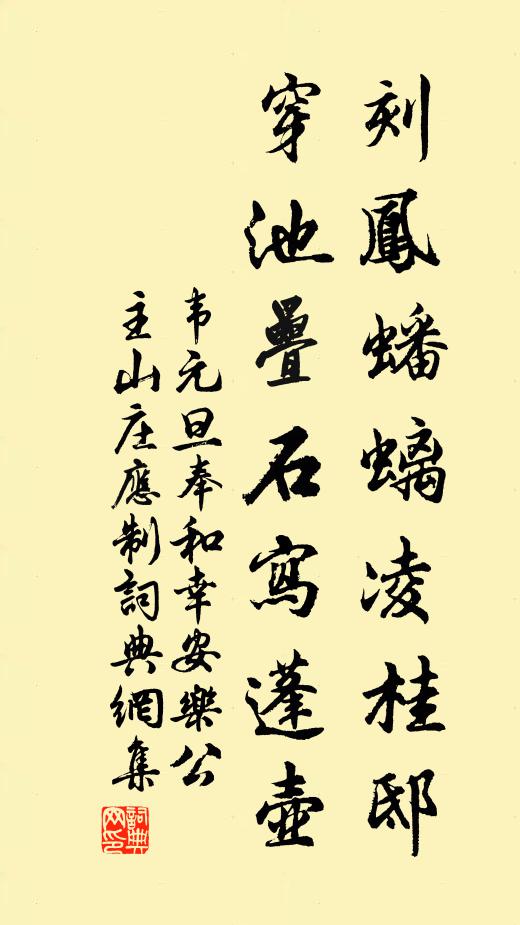 刻鳳蟠螭凌桂邸
穿池疊石寫蓬壺
韦元旦奉和幸安樂公
主山庄應制詞典網集
詞典
网印